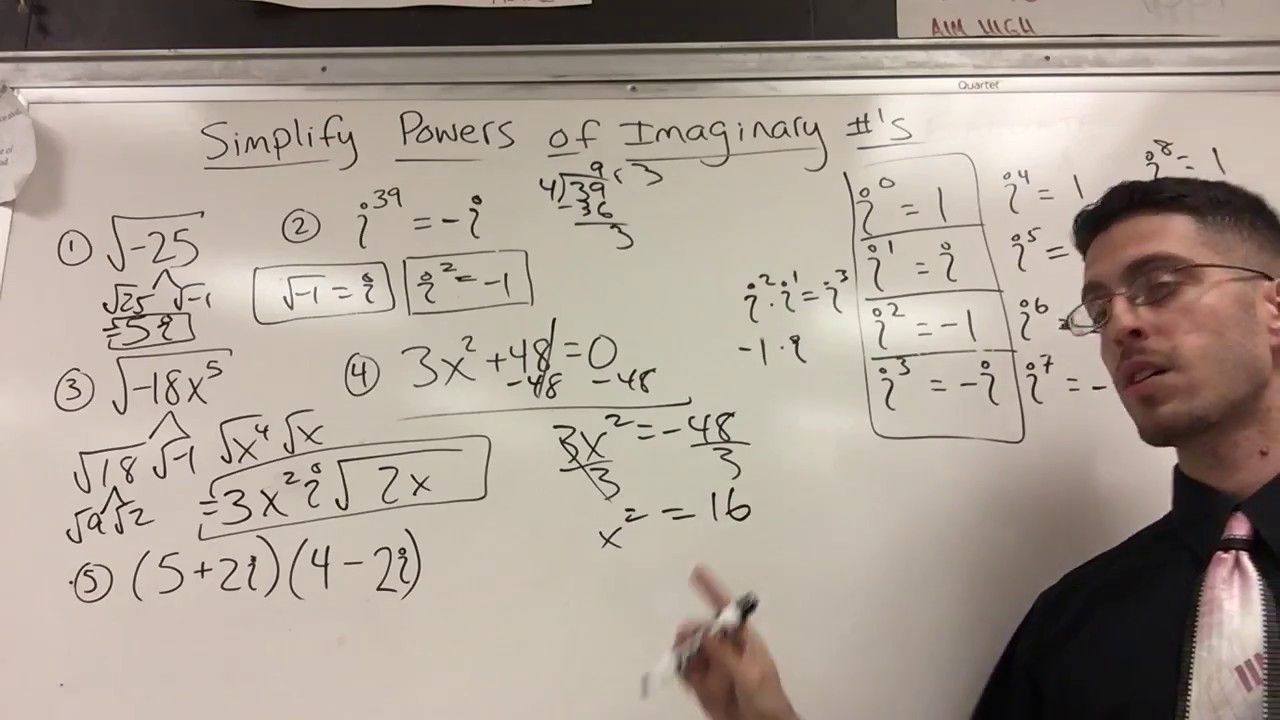 AIM HIGH
Quarter
Simplify Powers of Imaginary #'s
① √-25
√25 √-1
=5i
② i³⁹ = -i
9 r 3
4)39
-36
3
√-1 = i
i² = -1
③ √-18x⁵
√18 √-1 √x⁴ √x
√9 √2
=3x²i√2x
④ 3x² + 48 = 0
-48 -48
3x² = -48
3 3
x² = 16
⑤ (5+2i)(4-2i)
i²·i¹ = i³
-1·i
i⁰ = 1
i¹ = i
i² = -1
i³ = -i
i⁴ = 1
i⁵ =
i⁶ =
i⁷ = -
i⁸ = 1